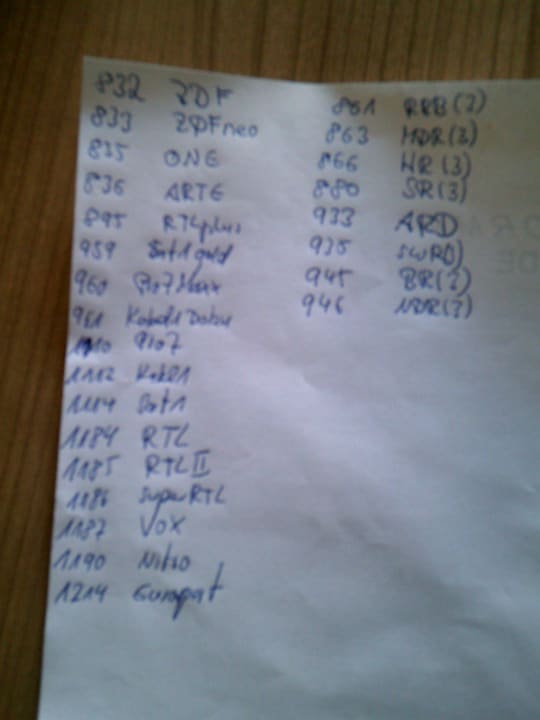 832 ZDF
833 ZDFneo
835 ONE
836 ARTE
895 RTLplus
959 Sat1gold
960 Pro7Maxx
961 Kabel1 Doku
1110 Pro7
1112 Kabel1
1114 Sat1
1184 RTL
1185 RTL II
1186 SuperRTL
1187 VOX
1190 Nitro
1214 Eurospot
861 RBB(3)
863 MDR(3)
866 HR(3)
880 SR(3)
933 ARD
935 SWR()
945 BR(3)
946 NDR(3)